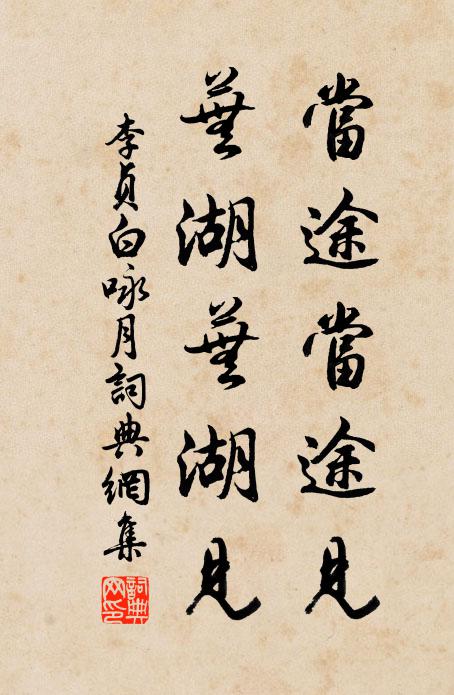 當途當途見
蕪湖蕪湖見
李貞白咏月詞典網集
詞典網印